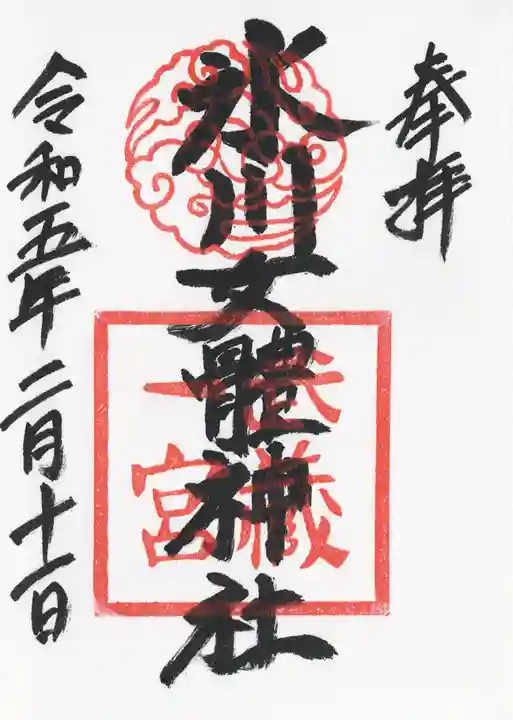 奉拝
氷川女體神社
武蔵
一宮
令和五年二月十一日